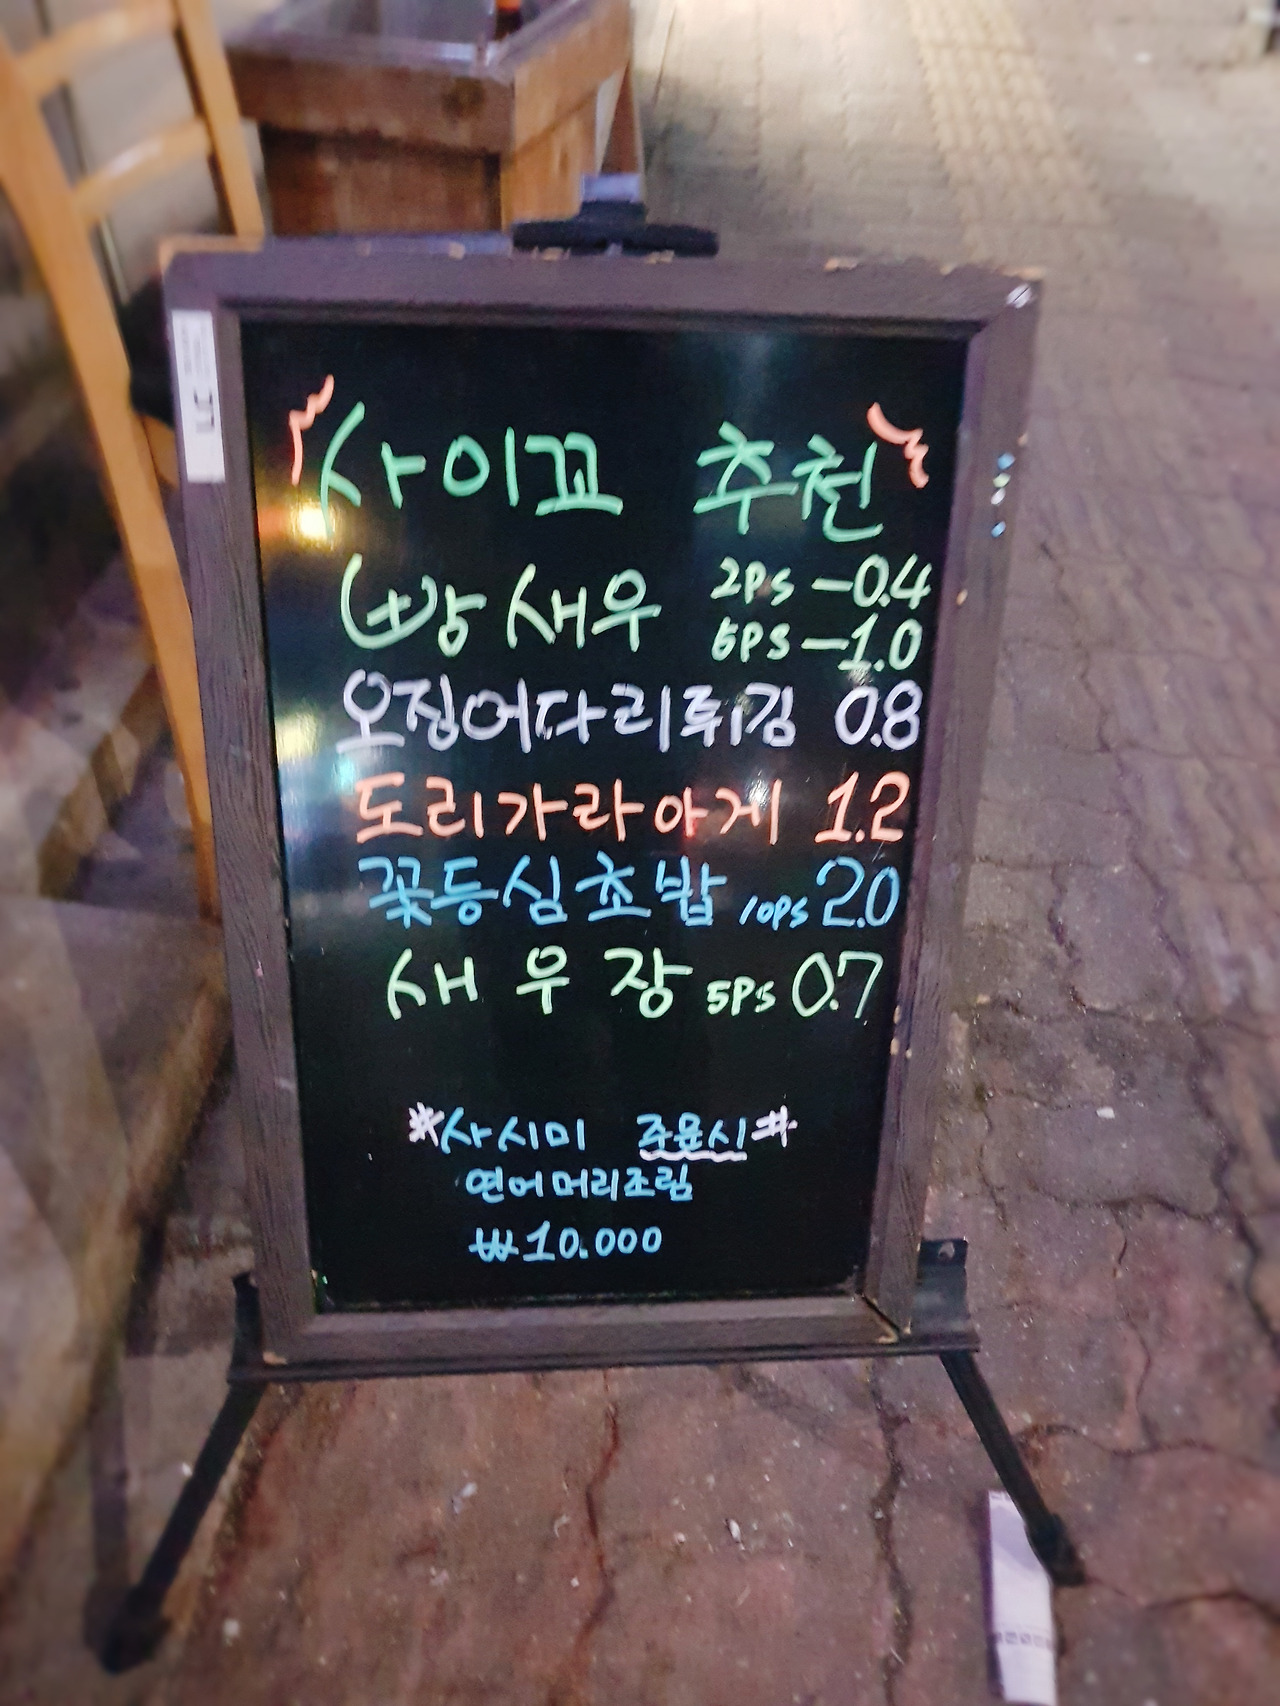 사이꼬 추천
빵새우 2PS -0.4
5PS -1.0
오징어다리튀김 0.8
도리가라아게 1.2
꽃등심초밥 10PS 2.0
새우장 5PS 0.7
*사시미 주문시*
연어머리조림
₩10.000